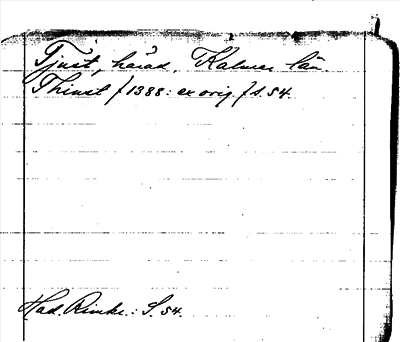 Tjust, härad, Kalmar län.
Thiust / 1388: ex orig. / S. 54.
Had. Rimkr.: S. 54.